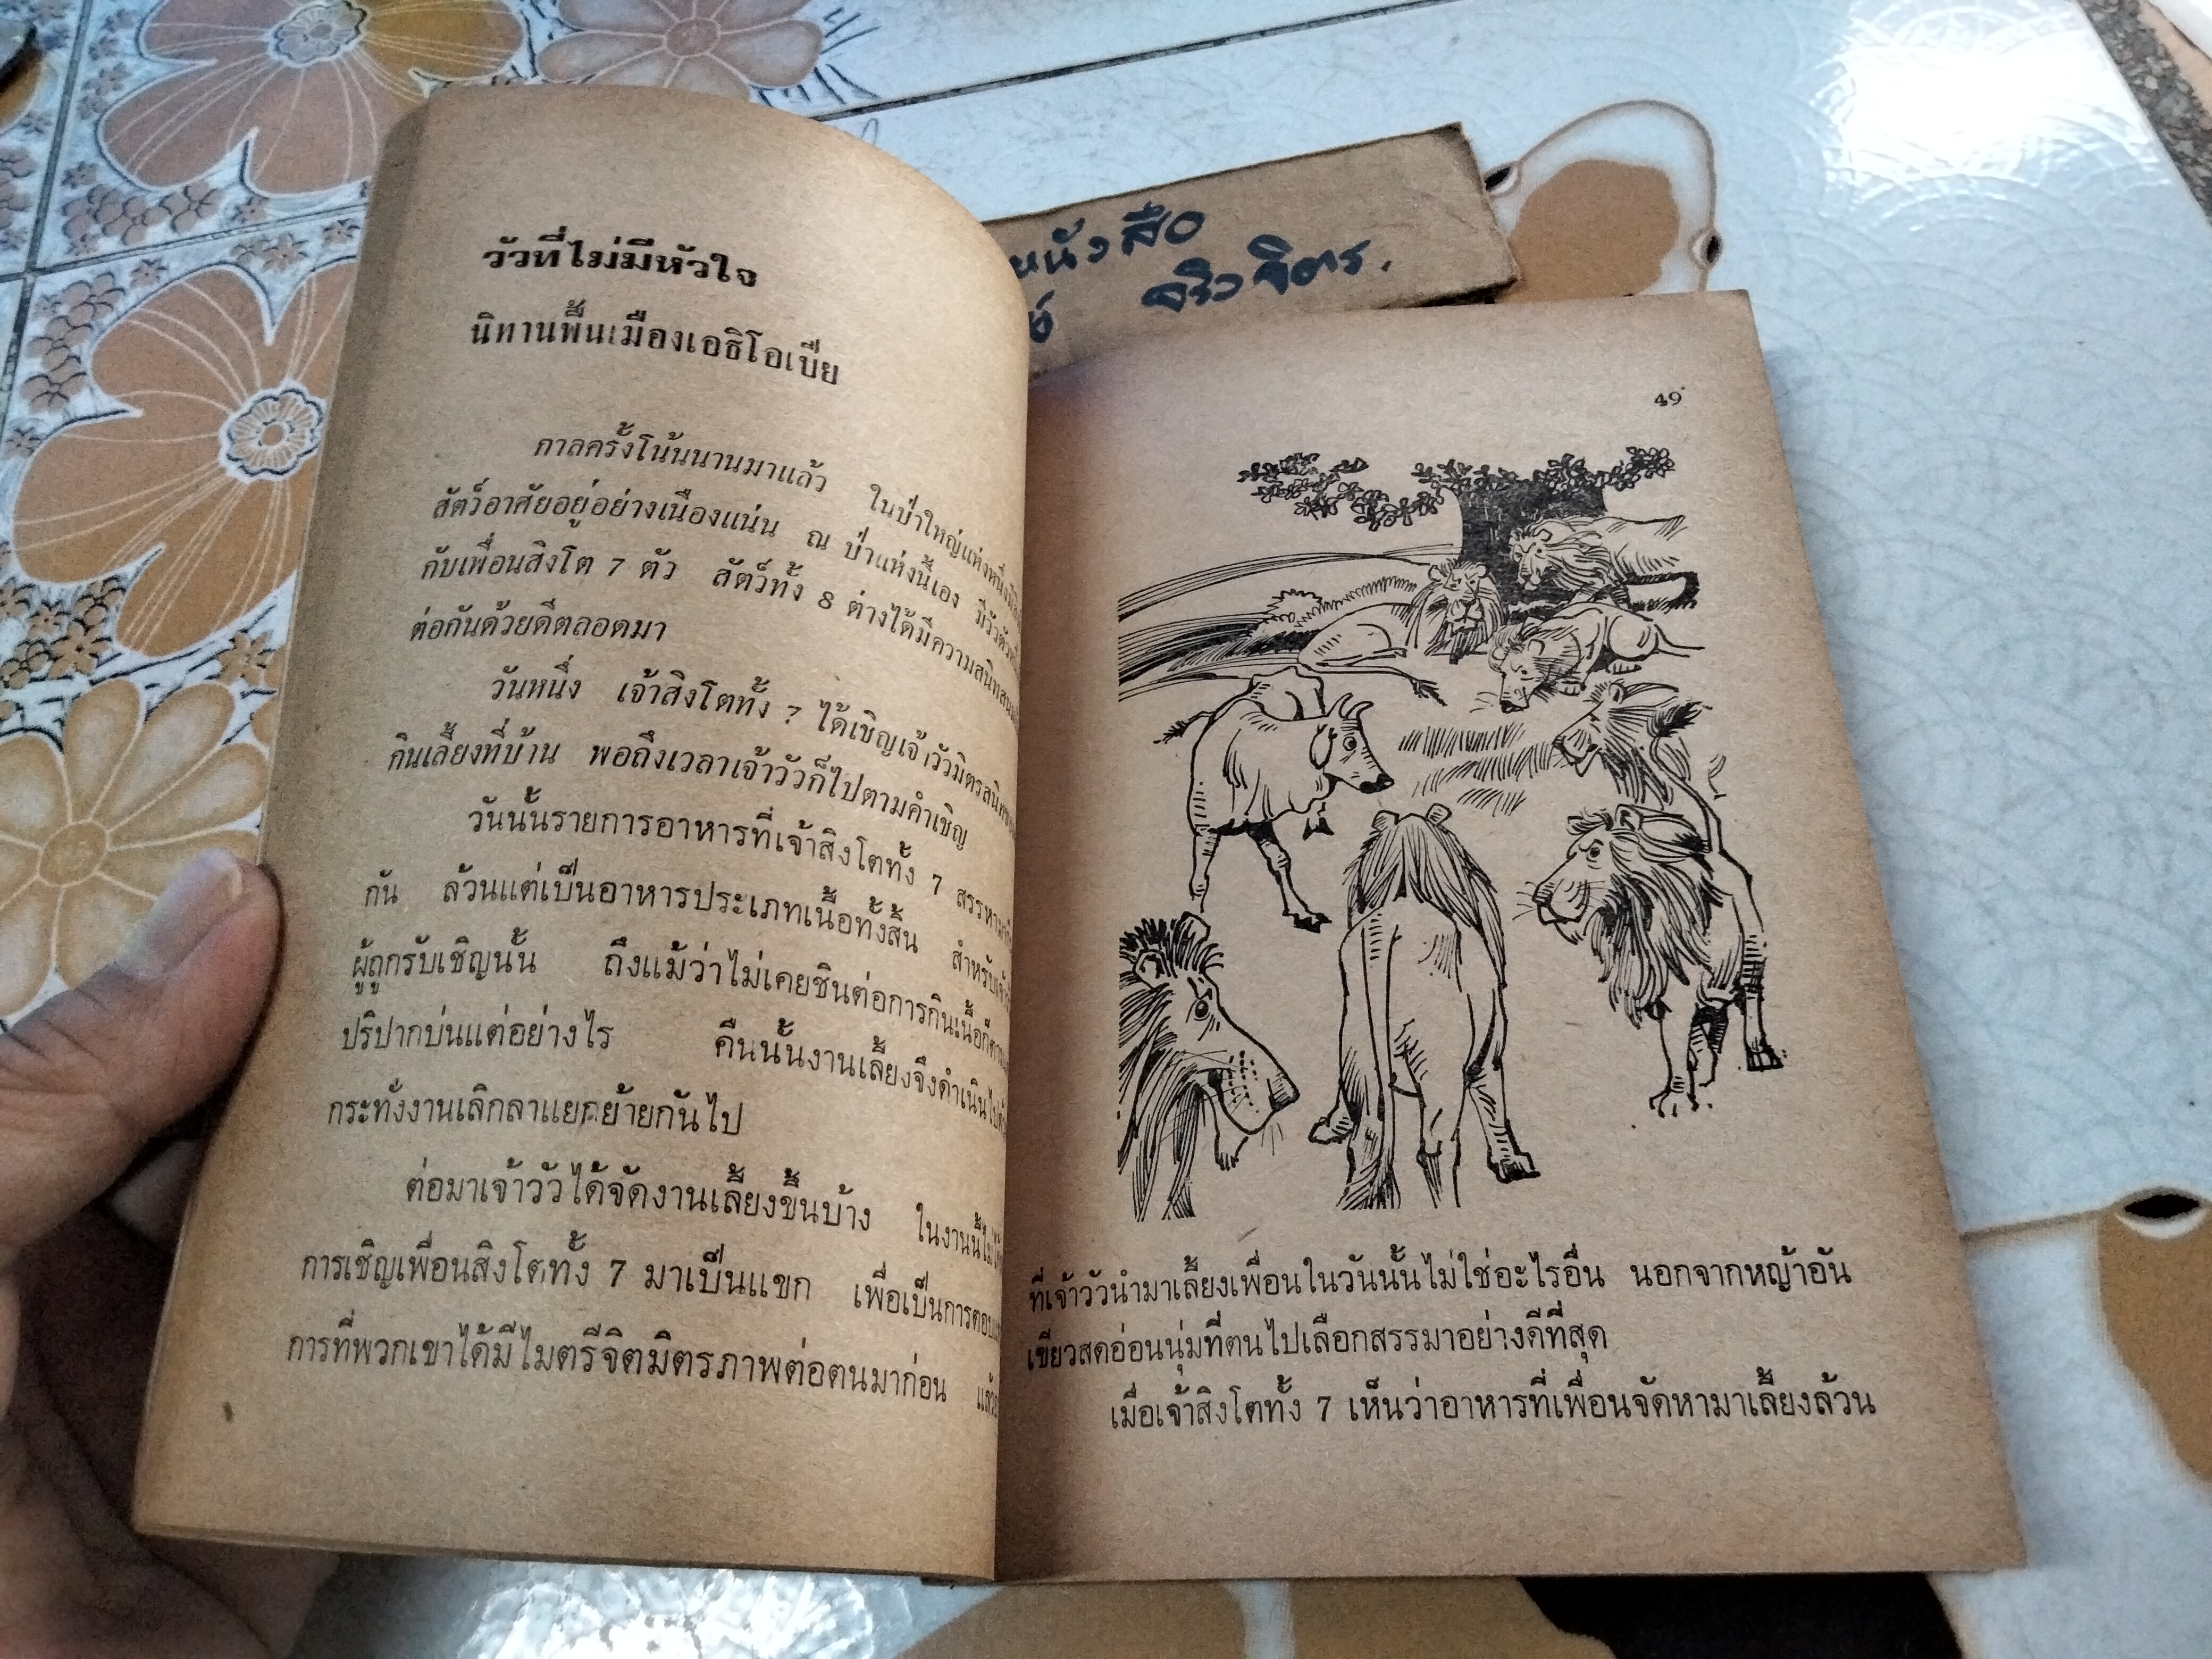 วัวที่ไม่มีหัวใจ
นิทานพื้นเมืองเอธิโอเปีย
กาลครั้งโน้นนานมาแล้ว ในป่าใหญ่แห่งหนึ่ง
สัตว์อาศัยอยู่อย่างเนืองแน่น ณ ป่าแห่งนี้เอง มีวัวตัวหนึ่ง
กับเพื่อนสิงโต 7 ตัว สัตว์ทั้ง 8 ต่างได้มีความสนิทสนม
ต่อกันด้วยดีตลอดมา
วันหนึ่ง เจ้าสิงโตทั้ง 7 ได้เชิญเจ้าวัวมิตรสนิท
กินเลี้ยงที่บ้าน พอถึงเวลาเจ้าวัวก็ไปตามคำเชิญ
วันนั้นรายการอาหารที่เจ้าสิงโตทั้ง 7 สรรหามา
กัน ล้วนแต่เป็นอาหารประเภทเนื้อทั้งสิ้น สำหรับเจ้าวัว
ผู้ถูกรับเชิญนั้น ถึงแม้ว่าไม่เคยชินต่อการกินเนื้อก็ตาม
ปริปากบ่นแต่อย่างไร คืนนั้นงานเลี้ยงจึงดำเนินไป
กระทั่งงานเลิกลาแยกย้ายกันไป
ต่อมาเจ้าวัวได้จัดงานเลี้ยงขึ้นบ้าง ในงานนี้
การเชิญเพื่อนสิงโตทั้ง 7 มาเป็นแขก เพื่อเป็นการตอบแทน
การที่พวกเขาได้มีไมตรีจิตมิตรภาพต่อตนมาก่อน
หนังสือ
จริวจิตร.
49
ที่เจ้าวัวนำมาเลี้ยงเพื่อนในวันนั้นไม่ใช่อะไรอื่น นอกจากหญ้าอัน
เขียวสดอ่อนนุ่มที่ตนไปเลือกสรรมาอย่างดีที่สุด
เมื่อเจ้าสิงโตทั้ง 7 เห็นว่าอาหารที่เพื่อนจัดหามาเลี้ยงล้วน